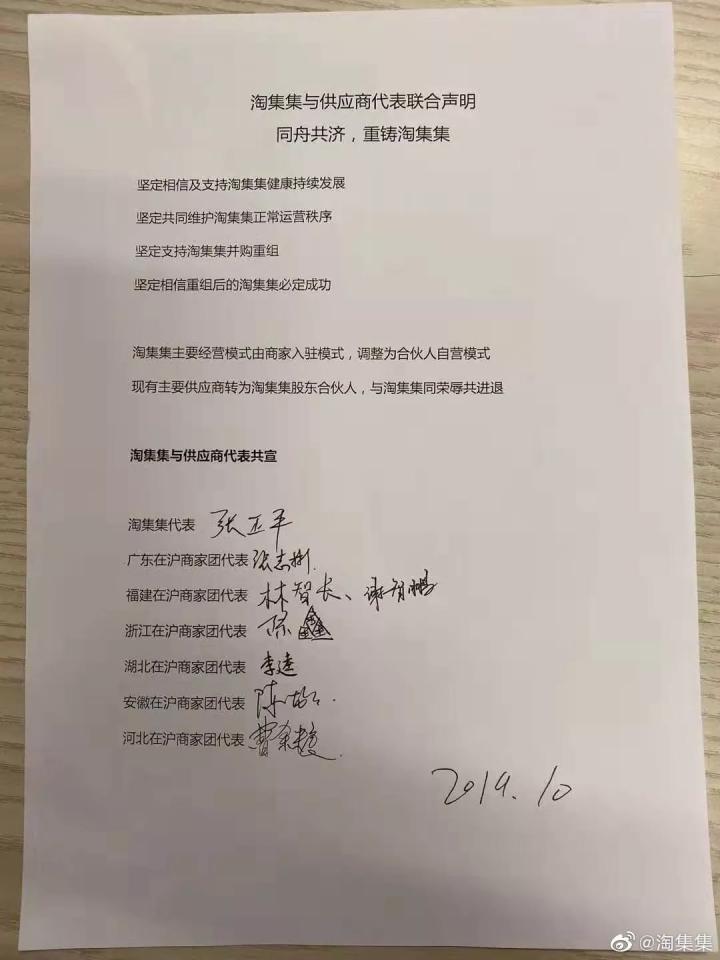 淘集集与供应商代表联合声明
同舟共济，重铸淘集集
坚定相信及支持淘集集健康持续发展
坚定共同维护淘集集正常运营秩序
坚定支持淘集集并购重组
坚定相信重组后的淘集集必定成功
淘集集主要经营模式由商家入驻模式，调整为合伙人自营模式
现有主要供应商转为淘集集股东合伙人，与淘集集同荣辱共进退
淘集集与供应商代表共宣
淘集集代表 张正平
广东在沪商家团代表 张志
福建在沪商家团代表 林智长、谢
浙江在沪商家团代表 陈鑫
湖北在沪商家团代表 李逵
安徽在沪商家团代表 陈
河北在沪商家团代表 曹
2019.10
@淘集集